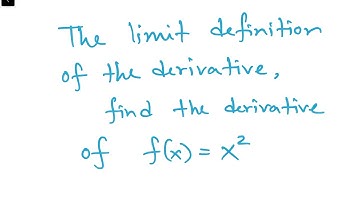 The limit definition
of the derivative,
find the derivative
of f(x) = x²